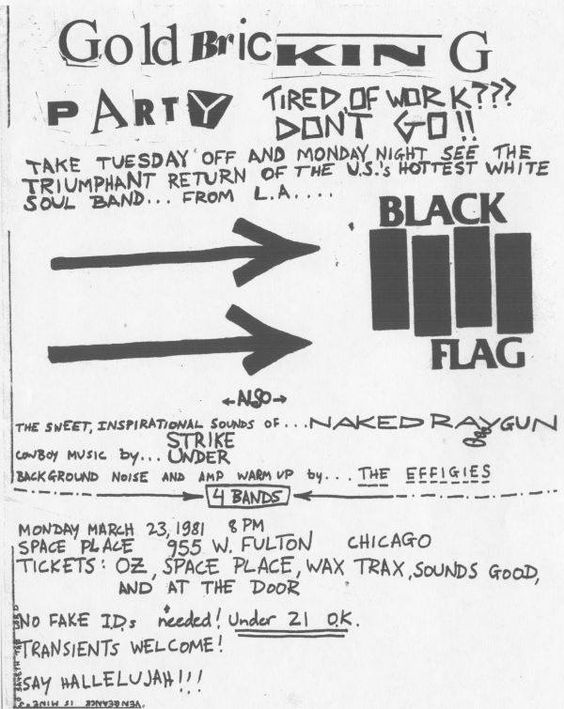 GoldBricKING
PARTY
TIRED OF WORK???
DON'T GO!!
TAKE TUESDAY OFF AND MONDAY NIGHT SEE THE
TRIUMPHANT RETURN OF THE U.S.'s HOTTEST WHITE
SOUL BAND... FROM L.A....
BLACK
FLAG
ALSO
THE SWEET, INSPIRATIONAL SOUNDS OF... NAKED RAYGUN
COWBOY MUSIC by... STRIKE UNDER
BACKGROUND NOISE AND AMP WARM UP by... THE EFFIGIES
4 BANDS
MONDAY MARCH 23, 1981 8 PM
SPACE PLACE 955 W. FULTON CHICAGO
TICKETS: OZ, SPACE PLACE, WAX TRAX, SOUNDS GOOD,
AND AT THE DOOR
NO FAKE IDs needed! Under 21 O.K.
TRANSIENTS WELCOME!
SAY HALLELUJAH!!!
VENGEANCE IS MINE
SAYETH THE LORD